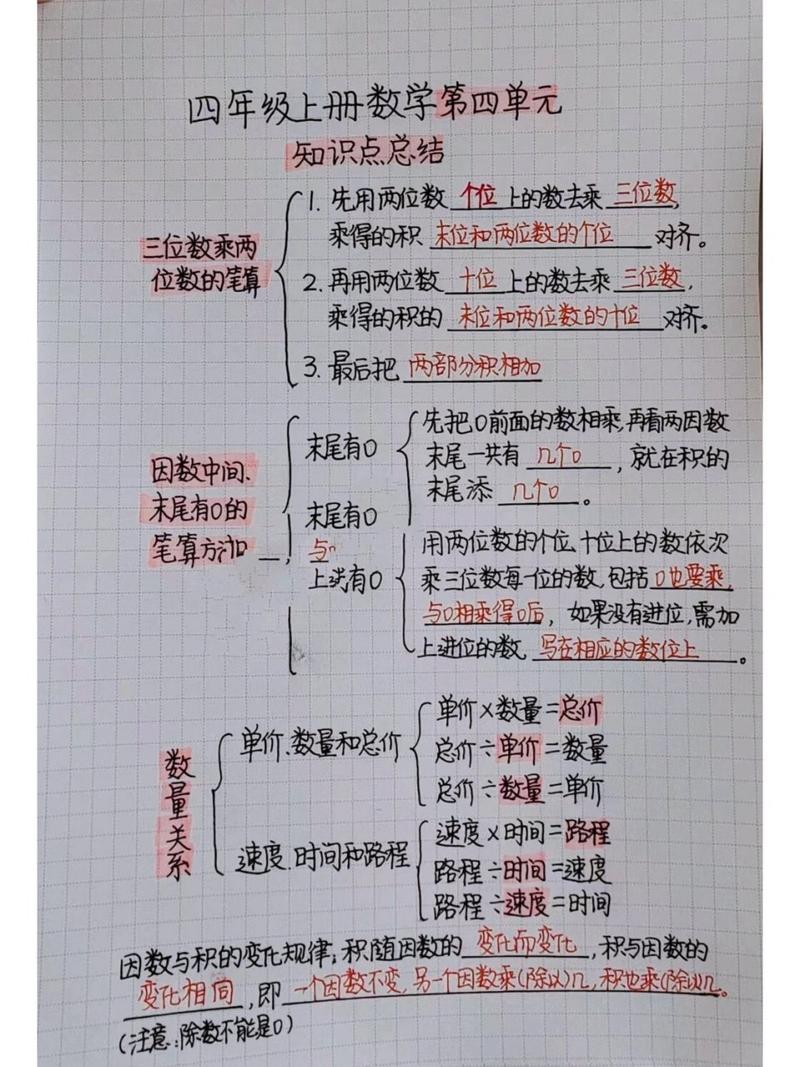 四年级上册数学第四单元
知识点总结
三位数乘两
位数的笔算
1. 先用两位数 个位 上的数去乘 三位数,
乘得的积 末位和两位数的个位 对齐。
2. 再用两位数 十位 上的数去乘 三位数,
乘得的积的 末位和两位数的十位 对齐。
3. 最后把 两部分积相加
因数中间、
末尾有0的
笔算方法
末尾有0
先把0前面的数相乘,再看两因数
末尾一共有 几个0 ,就在积的
末尾添 几个0 。
末尾有0
与
有0
用两位数的个位、十位上的数依次
乘三位数每一位的数,包括 0也要乘,
与0相乘得0后, 如果没有进位,需加
上进位的数 写在相应的数位上 。
数量关系
单价、数量和总价
单价×数量=总价
总价÷单价=数量
总价÷数量=单价
速度、时间和路程
速度×时间=路程
路程÷时间=速度
路程÷速度=时间
因数与积的变化规律:积随因数的 变化而变化 ,积与因数的
变化相同 ,即 一个因数不变,另一个因数乘(除以)几,积也乘(除以)几。
(注意:除数不能是0)